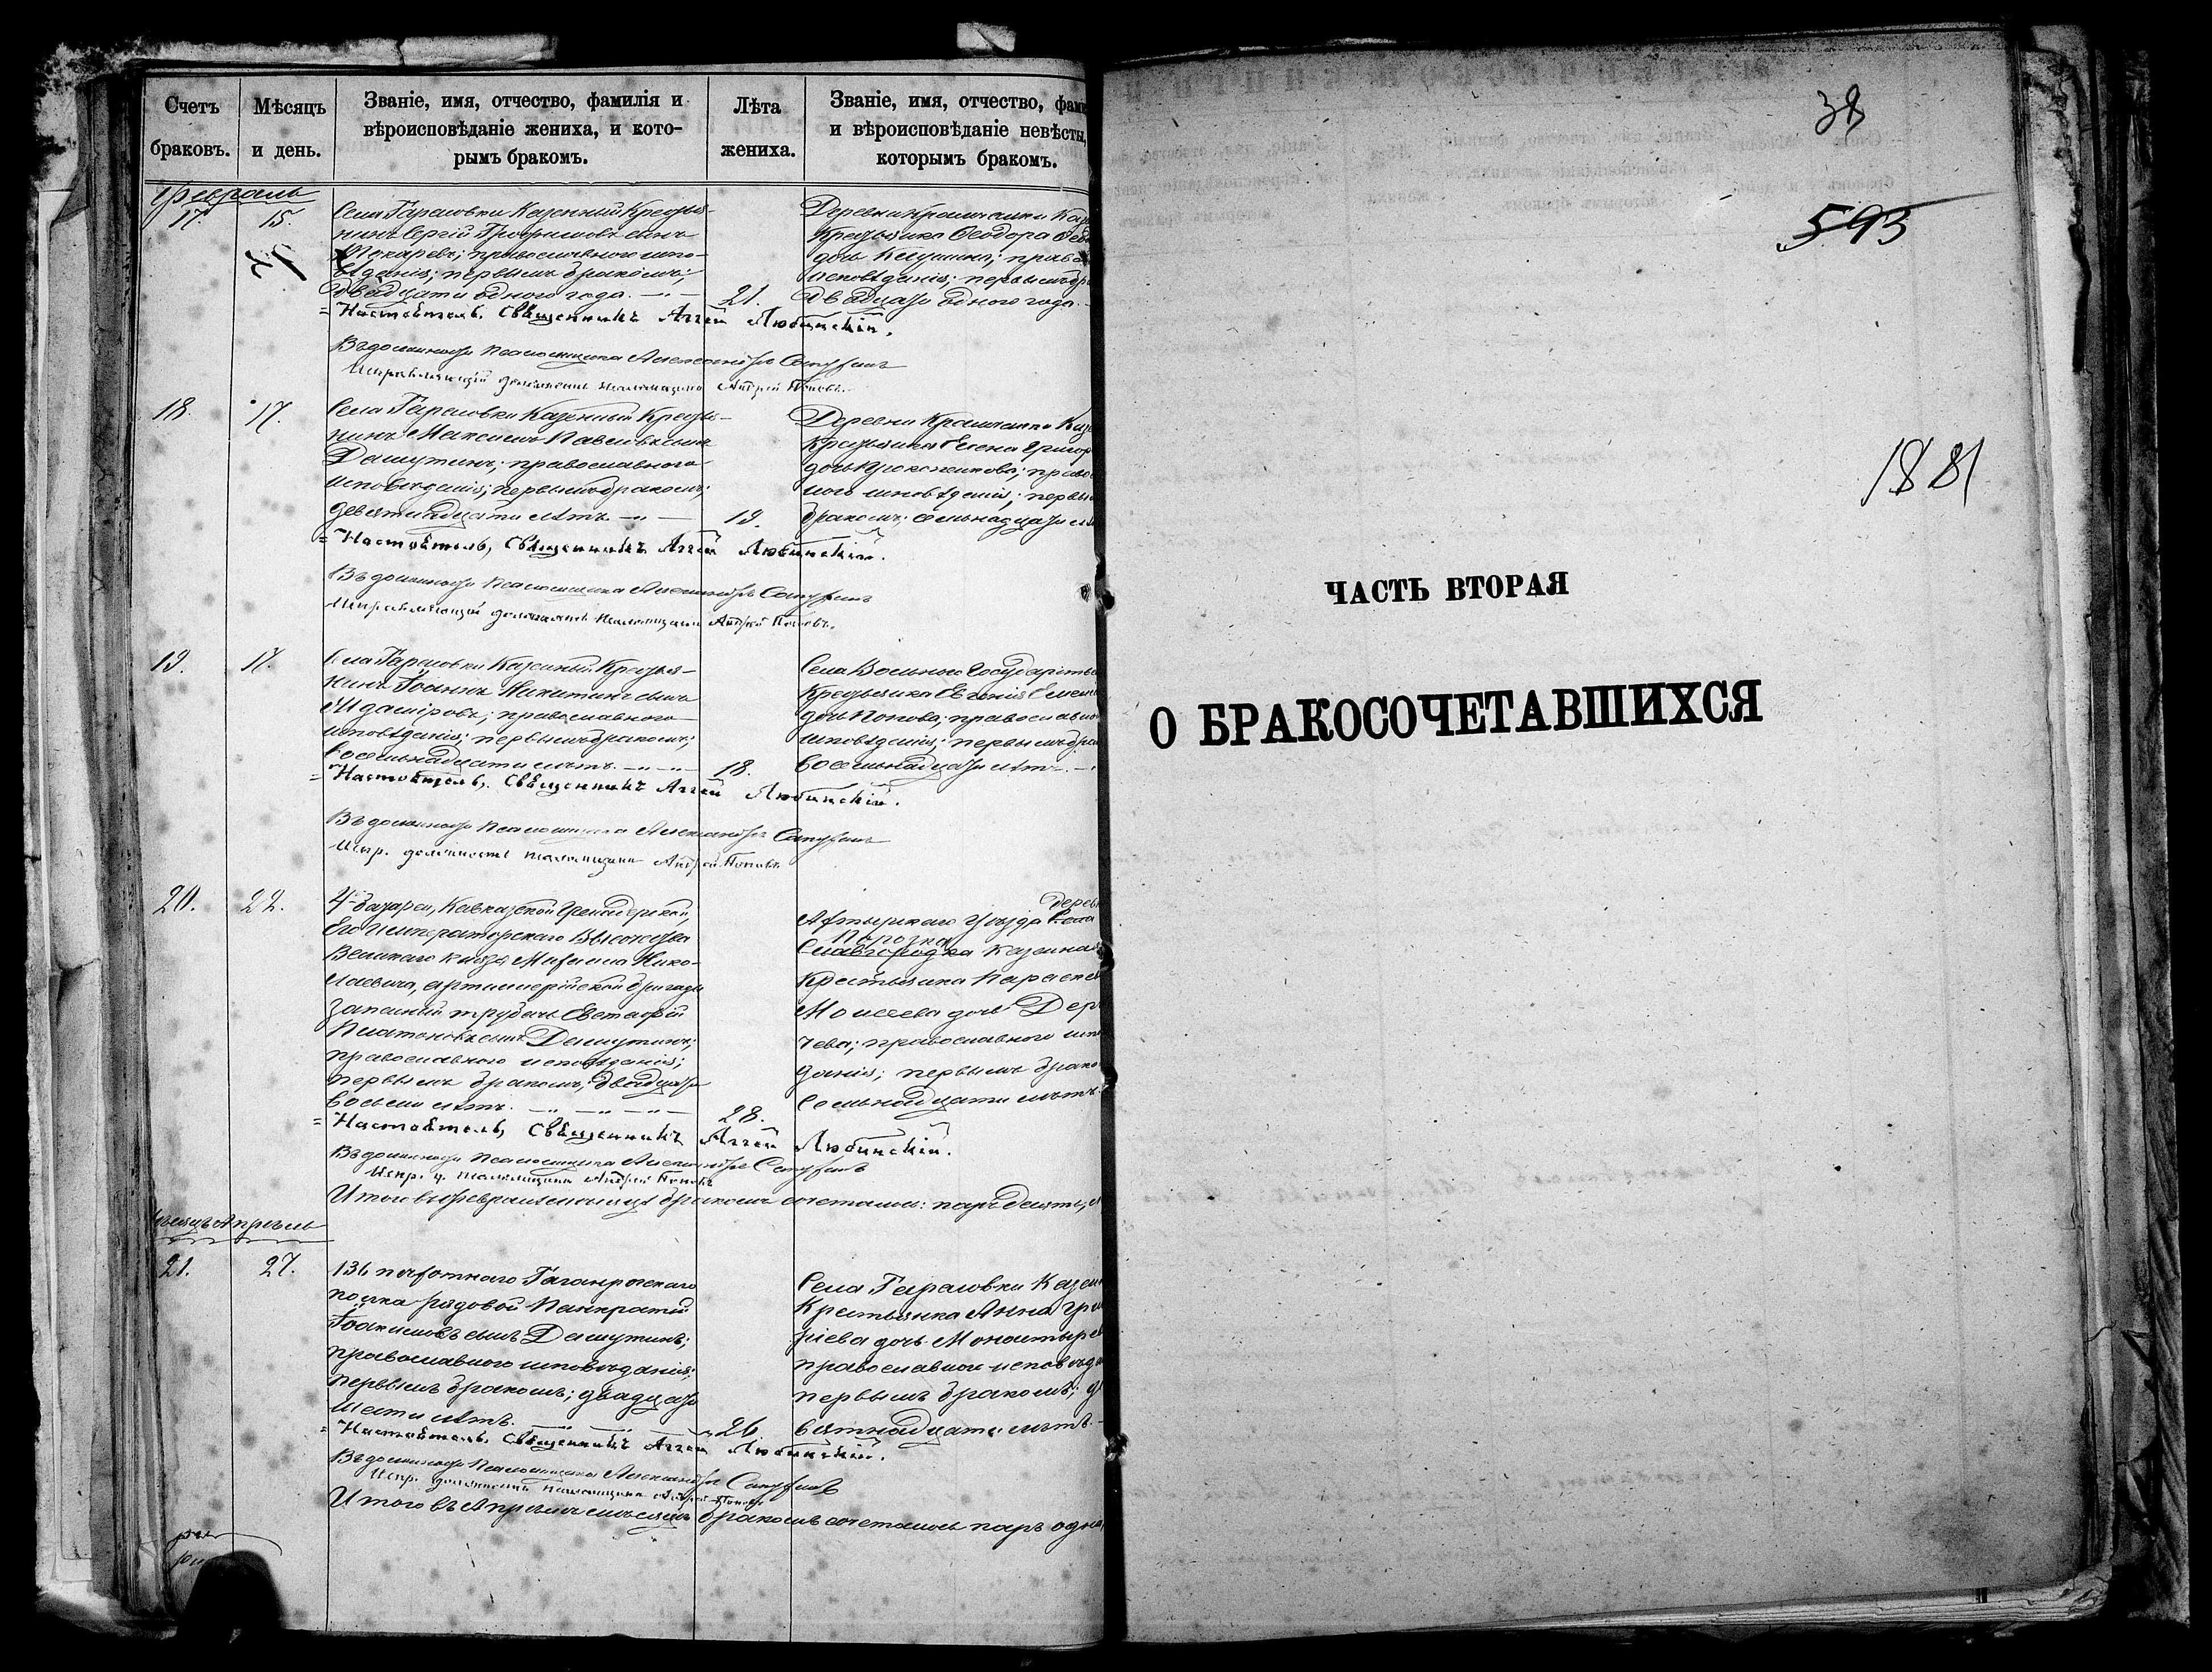 Счетъ
браковъ.
Мѣсяцъ
и день.
Званіе, имя, отчество, фамилія и
вѣроисповѣданіе жениха, и кото-
рымъ бракомъ.
Лѣта
жениха.
Званіе, имя, отчество, фами
и вѣроисповѣданіе невѣсты,
которымъ бракомъ.
Февраль
17. 15.
Казенный Крестья-
нинъ Сергій сынъ
православнаго испо-
вѣданія; первымъ бракомъ;
двадцати одного года.
21.
Деревни Казе
Крестьянка Ѳеодора
дочь правос
исповѣданія; первымъ бра
двадцати одного года.
Настоятель, Священникъ Аггей Любинскій.
Въ должности Псаломщика Александръ
Исправляющій должность псаломщика Андрей Поповъ.
18. 17.
Казенный Крестья-
нинъ Максимъ Павловъ сынъ
Дашутинъ; православнаго
исповѣданія; первымъ бракомъ;
девятнадцати лѣтъ.
19.
Деревни Казе
Крестьянка Елена Григор
дочь правос
наго исповѣданія; первы
бракомъ; семьнадцати лѣ
Настоятель, Священникъ Аггей Любинскій.
Въ должности Псаломщика Александръ
Исправляющій должность псаломщика Андрей Поповъ.
19. 17.
Казенный Крестья-
нинъ Іоаннъ Никитинъ сынъ
православнаго
исповѣданія; первымъ бракомъ;
восемьнадцати лѣтъ.
18.
Села Вольнаго Государстве
Крестьянка Евгенія
дочь Попова; православна
исповѣданія; первымъ бра
восемьнадцати лѣтъ.
Настоятель, Священникъ Аггей Любинскій.
Въ должности Псаломщика Александръ
Испр. должность псаломщика Андрей Поповъ
20. 22.
4й батареи, Кавказской Гренадерской,
Его Императорскаго Высочества
Великаго Князя Михаила Нико-
лаевича, артиллерійской бригады
запасный трубачъ Евстафій
Платоновъ сынъ Дашутинъ;
православнаго исповѣданія;
первымъ бракомъ, двадцати
восьми лѣтъ.
28.
дерев
Ахтырскаго Уѣзда Села
Порозка
Славгородка казенная
Крестьянка Параскев
Моисеева дочь Дер
чева; православнаго испо
данія; первымъ брако
семьнадцати лѣтъ.
Настоятель, Священникъ Аггей Любинскій.
Въ должности Псаломщика Александръ
Испр. д. псаломщика Андрей Поповъ
Итого въ Февралѣ мѣсяцѣ бракомъ сочеталось: паръ десять,
Мѣсяцъ Апрѣль
21. 27.
136 пѣхотнаго Таганрогскаго
полка рядовой Панкратій
Іоакимовъ сынъ Дашутинъ;
православнаго исповѣданія;
первымъ бракомъ; двадцати
шести лѣтъ.
26.
Села Казен
Крестьянка Анна Гри
ріева дочь Монастыре
православнаго исповѣда
первымъ бракомъ; де
вятнадцати лѣтъ.
Настоятель, Священникъ Аггей Любинскій.
Въ должности Псаломщика Александръ
Испр. должность псаломщика Андрей Поповъ
Итого въ Апрѣлѣ мѣсяцѣ бракомъ сочеталось паръ одна
38
593
1881
ЧАСТЬ ВТОРАЯ
О БРАКОСОЧЕТАВШИХСЯ